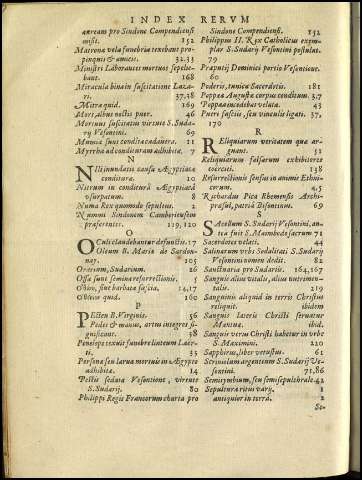 INDEX RERVM
aëream pro Sindone Compendiensi
misit. 152
Matronæ vela funebria texebant pro-
pinquis & amicis. 32.33
Ministri Laborantes mortuos sepelie-
bant. 168
Miracula binain suscitatione Laza-
ri. 37,38
Mitra quid. 169
Mors, alius noctis puer. 46
Mortuus suscitatus virtute S. Suda-
rij Vesontini. 69
Mumia sunt condita cadauera. 11
Myrrha ad condituram adhibita. 7
N
Nili inundatio causa Ægyptiacæ
condituræ. 10
Nitrum in conditura Ægyptiaca
vsurpatum. 8
Numa Rex quomodo sepultus. 2
Nummi Sindonem Camberiensem
præferentes. 119, 120
O
Oculi claudebantur defunctis. 17
Oleum B. Mariæ de Sardon-
nay. 105
Orarium, Sudarium. 26
Ossa sunt semina resurrectionis. 5
Othoni, siue barbatæ fascia. 14,17
Othone quid. 160
P
Pecten B. Virginis. 56
Pedes & manus, artus integros si-
gnificant. 38
Penelope texuit funebre linteum Laer-
ti. 33
Persona seu larua mortuis in Ægypto
adhibita. 14
Pestis sedata Vesontione, virtute
S. Sudarij. 80
Philippi Regis Francorum charta pro
Sindone Compendiensi. 152
Philippus II. Rex Catholicus exem-
plar S. Sudarij Vesontini postulat.
79
Præputij Dominici portio Vesontione.
60
Poderis, tunica Sacerdotis. 181
Poppæa Augusta corpus conditum. 3.7
Poppæa incedebat veluta. 43
Pueri fasciis, seu vinculis ligati. 37,
170
R
Reliquiarum veritatem qua ar-
guant. 51
Reliquiarum falsarum exhibitores
coerciti. 138
Resurrectionis sensus in animis Ethni-
corum. 4,5
Richardus Pica Rhemensis Archi-
præsul, patria Bisontinus. 69
S
Sacellum S. Sudarij Vesontini, an-
tea fuit S. Maimbodo sacrum 71
Sacerdotes velati. 44
Salinarum vrbs Sodalitati S. Sudarij
Vesontini nomen dedit. 82
Sanctuaria pro Sudariis. 164,167
Sanguis alius vitalis, alius nutrimen-
talis. 219
Sanguinis aliquid in terris Christus
reliquit. ibidem
Sanguis lateris Christi seruatur
Mantuæ. ibid.
Sanguis veræ Christi habetur in vrbe
S. Maximini. 220
Sapphirus, libet vetustus. 61
Scriniolum argenteum S. Sudarij Ve-
sontini. 71,86
Semicymbium, seu semisepulchrale 42
Sepultura ritus varij. 1
antiquior in terra. 2
Se-